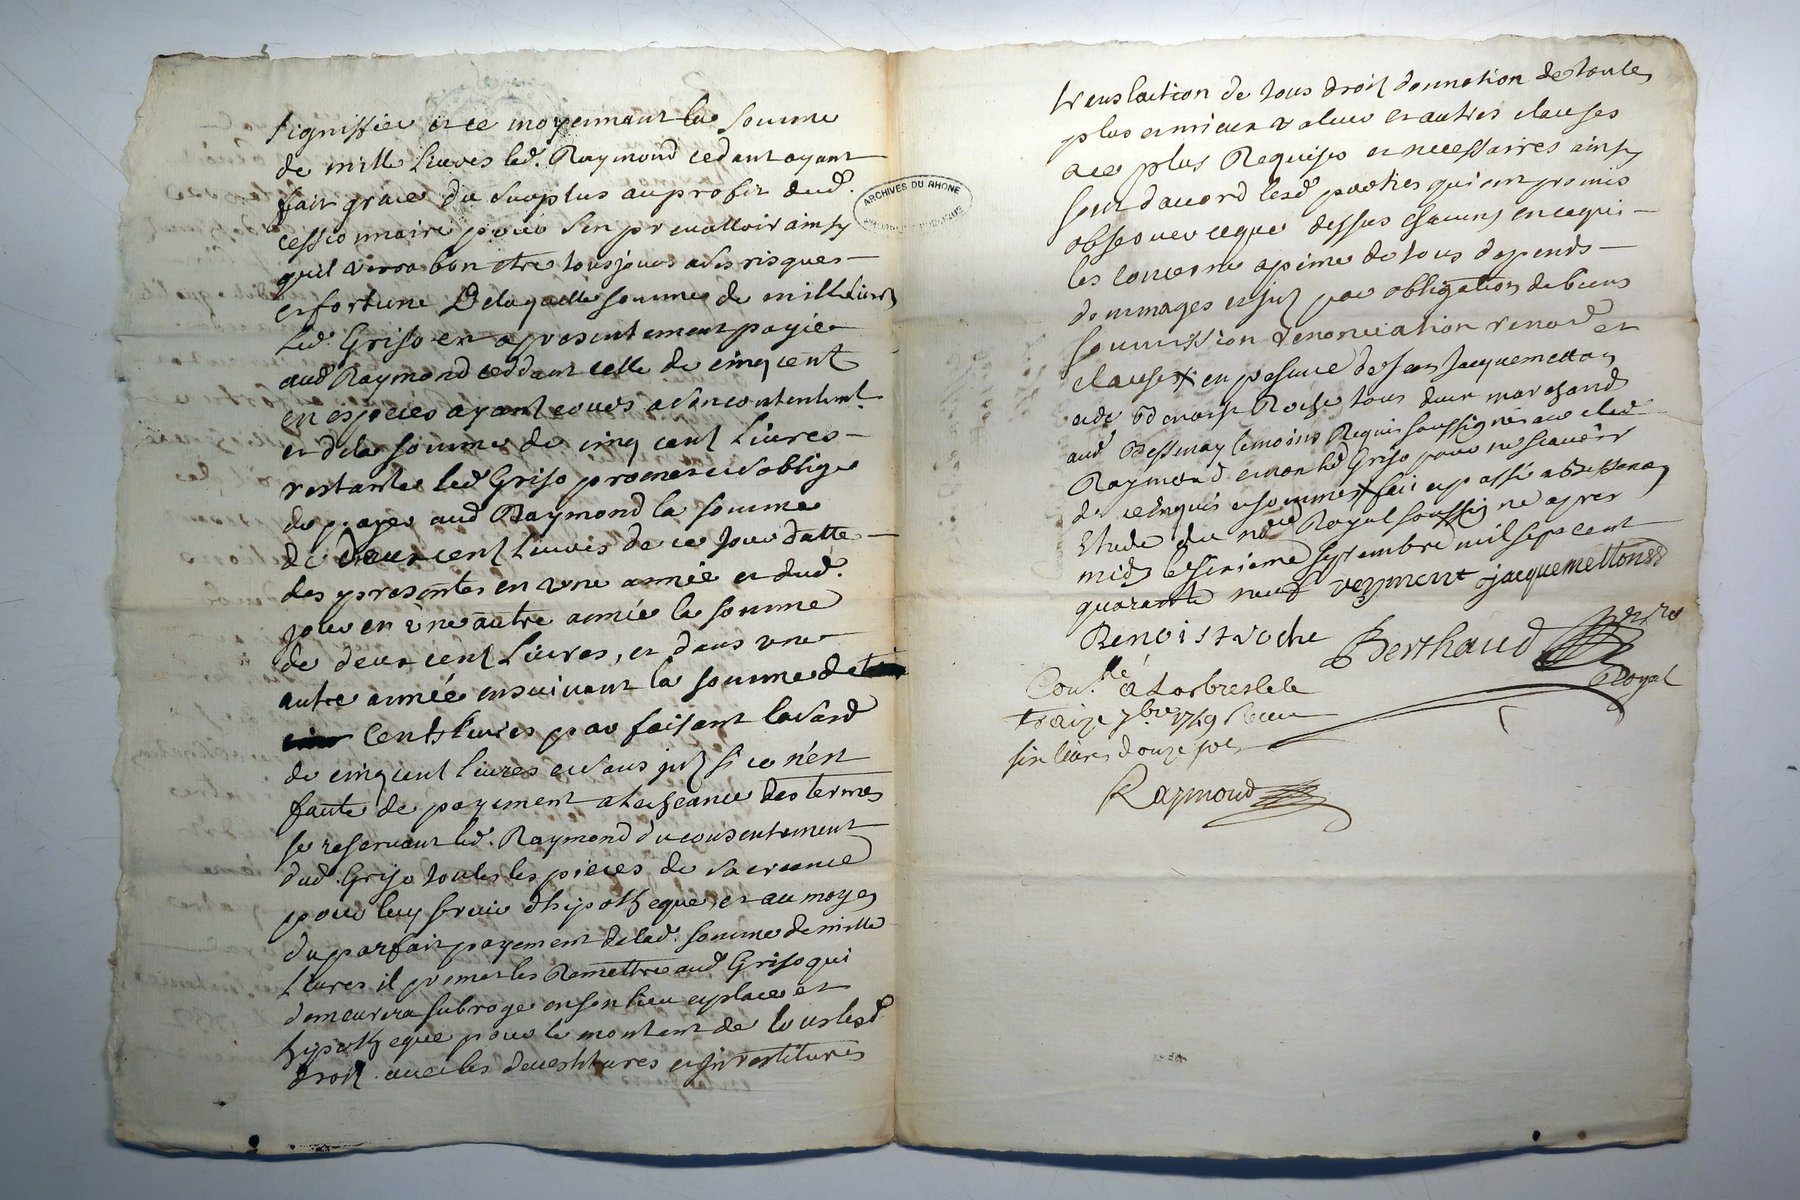 signiffier et ce moyennant la somme
de mille livres led. Raymond cedant ayant
fait grace du surplus au profit dud.
cessionnaire pour sen prevalloir ainsy
quil verra bon etre tousjours a ses risques
et fortune De laquelle somme de mille livres
Led. Griso en a presentement payé
aud Raymond ceddant celle de cinq cent
en especes ayant cours a son contentemt.
et de la somme de cinq cent Livres
restante led Griso promet et soblige
de payer aud Raymond la somme
de deux cent Livres de ce jour datte
des presentes en une année et dud.
jour en une autre année la somme
de deux cent Livres, et dans une
autre année ensuivant la somme de
cent livres parfaisant lasd
de cinq cent livres et sans jnt si ce n'est
faute de payement a lecheance des termes
se reservant led. Raymond du consentement
dud. Griso toutes les pieces de sa creance
pour luy servir dhipotheque, et au moyen
du parfait payement de lad. somme de mille
Livres il promet les Remettre aud Griso qui
demeurera subrogé en son lieu et place et
hipotheque pour le montant de tous lesd
droit avec les devestitures et jnvestitures
ARCHIVES DU RHONE
translaction de tous droit donnation de toutes
plus et mieux value et autres clauses
a ce plus Requises et necessaires ainsy
sont daccord lesd parties qui ont promis
observer ce que dessus chacuns en ce qui
les concerne a peine de tous depends
dommages et jnt par obligation de biens
soumission renonciation renond et
clauses en presence de Jean Jacquemetton
et de Benoist Roche tous deux marchands
aud Bessenay temoins Requis soussignés avec led
Raymond et non led Griso pour ne scavoir
de ce enquis et sommé fait et passé a Bessenay
Etude du nore Royal soussigné apres
midy le seizieme septembre mil sept cent
quarante neuf reymont jacquemetton
Benoist roche Berthaud nore
Royal
Conlé a Larbresle le
traize 7bre 1749 Receu
six livres douze sols
Raymond